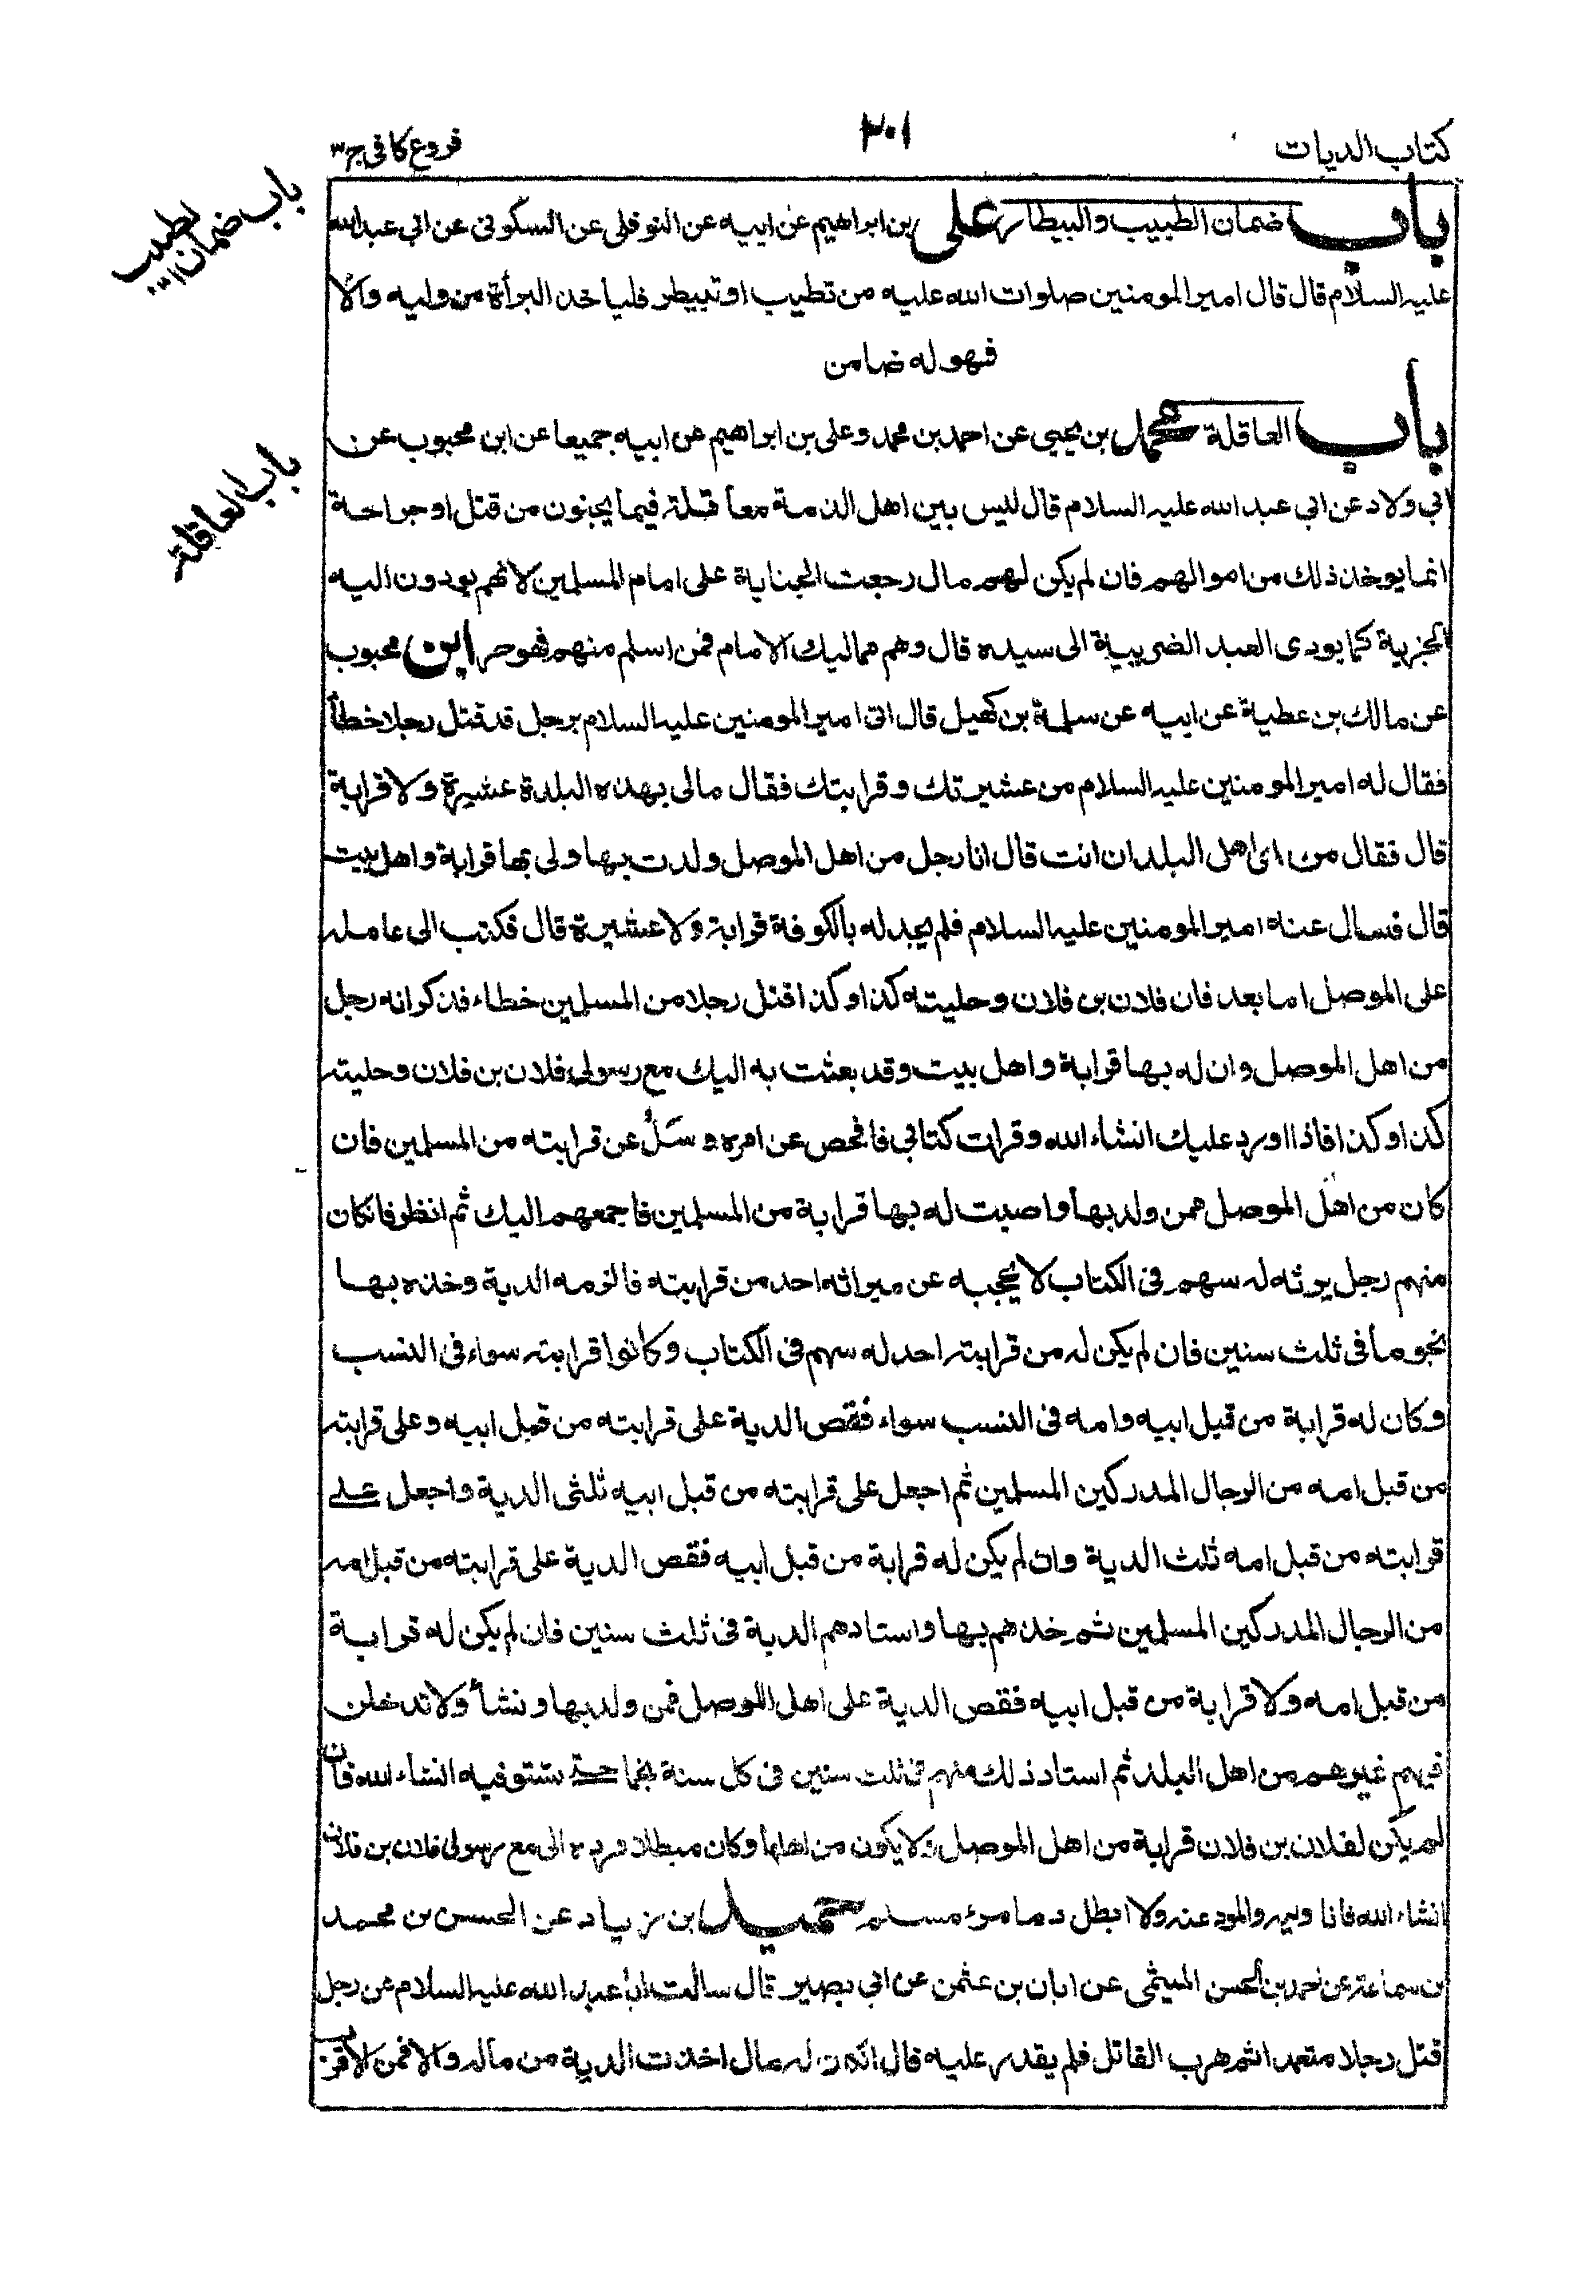 كتاب الديات
٣٠١
فروع كافى ج٣
باب ضمان الطبيب والبيطار على بن ابراهيم عن ابيه عن النوفلى عن السكونى عن ابي عبدالله
عليه السلام قال قال امير المومنين صلوات الله عليه من تطيب او تبيطر فلياخذ البرأة من وليه والّا
فهو له ضامن
باب العاقلة محمد بن يحيى عن احمد بن محمد وعلى بن ابراهيم عن ابيه جميعا عن ابن محبوب عن
ابي ولاد عن ابي عبد الله عليه السلام قال ليس بين اهل الذمة معاقلة فيما يجنون من قتل او جراحة
انما يوخذ ذلك من اموالهم فان لم يكن لهم مال رجعت الجناية على امام المسلمين لانهم يودون اليه
الجزية كما يودى العبد الضريبة الى سيده قال وهم مماليك الامام فمن اسلم منهم فهو حر ابن محبوب
عن مالك بن عطية عن ابيه عن سلمة بن كهيل قال اتى امير المومنين عليه السلام برجل قد قتل رجلا خطأ
فقال له امير المومنين عليه السلام من عشيرتك وقرابتك فقال مالى بهذه البلدة عشيرة ولا قرابة
قال فقال من اى اهل البلدان انت قال انا رجل من اهل الموصل ولدت بها ولى بها قرابة واهل بيت
قال فسال عنه امير المومنين عليه السلام فلم يجد له بالكوفة قرابة ولا عشيرة قال فكتب الى عامله
على الموصل اما بعد فان فلان بن فلان وحليته كذا وكذا قتل رجلا من المسلمين خطاء فذكر انه رجل
من اهل الموصل وان له بها قرابة واهل بيت وقد بعثت به اليك مع رسولى فلان بن فلان وحليته
كذا وكذا فاذا اورد عليك انشاء الله وقرات كتابي فافحص عن امره وسَلْ عن قرابته من المسلمين فان
كان من اهل الموصل ممن ولد بها واصبت له بها قرابة من المسلمين فاجمعهم اليك ثم انظر فانكان
منهم رجل يرثه له سهم فى الكتاب لا يحجبه عن ميراثه احد من قرابته فالزمه الدية وخذه بها
نجوما فى ثلث سنين فان لم يكن له من قرابته احد له سهم فى الكتاب وكانوا قرابته سواء فى النسب
وكان له قرابة من قبل ابيه وامه فى النسب سواء ففقص الدية على قرابته من قبل ابيه وعلى قرابته
من قبل امه من الرجال المدركين المسلمين ثم اجعل على قرابته من قبل ابيه ثلثى الدية واجعل على
قرابته من قبل امه ثلث الدية وان لم يكن له قرابة من قبل ابيه فقص الدية على قرابته من قبل امه
من الرجال المدركين المسلمين ثم خذهم بها واستادهم الدية فى ثلث سنين فان لم يكن له قرابة
من قبل امه ولا قرابة من قبل ابيه فقص الدية على اهل الموصل فمن ولد بها ونشأ ولا تدخلن
فيهم غيرهم من اهل البلد ثم استاد ذلك منهم فى ثلث سنين فى كل سنة نجما حتى تستوفيه انشاء الله فان
لم يكن لفلان بن فلان قرابة من اهل الموصل ولا يكون من اهلها وكان مبطلا فرده الى مع رسولى فلان بن فلان
انشاء الله فانا وليه والمود عنه ولا ابطل دم امرئ مسلم حميد بن زياد عن الحسن بن محمد
بن سماعة عن احمد بن الحسن الميثمى عن ابان بن عثمن عن ابي بصير قال سالت ابا عبد الله عليه السلام عن رجل
قتل رجلا متعمدا ثم هرب القاتل فلم يقدر عليه قال ان كان له مال اخذت الدية من ماله والا فمن الاقرب
باب ضمان الطبيب ١٣١
باب العاقلة